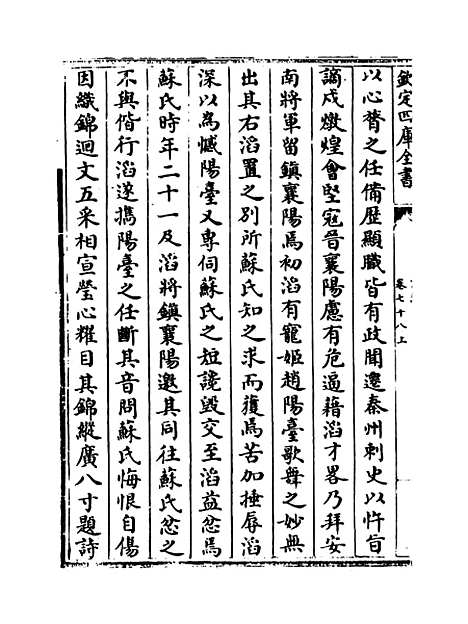 欽定四庫全書
卷七十八上
以心膂之任備歴顯職皆有政聞遷秦州刺史以忤旨
謫戍燉煌會堅寇晉襄陽慮有危逼藉滔才畧乃拜安
南將軍留鎮襄陽焉初滔有寵姬趙陽臺歌舞之妙無
出其右滔置之别所蘇氏知之求而獲焉苦加捶辱滔
深以為憾陽臺又專伺蘇氏之短讒毀交至滔益忿焉
蘇氏時年二十一及滔將鎮襄陽邀其同往蘇氏忿之
不與偕行滔遂擕陽臺之任斷其音問蘇氏悔恨自傷
因織錦迴文五采相宣瑩心耀目其錦縱廣八寸題詩